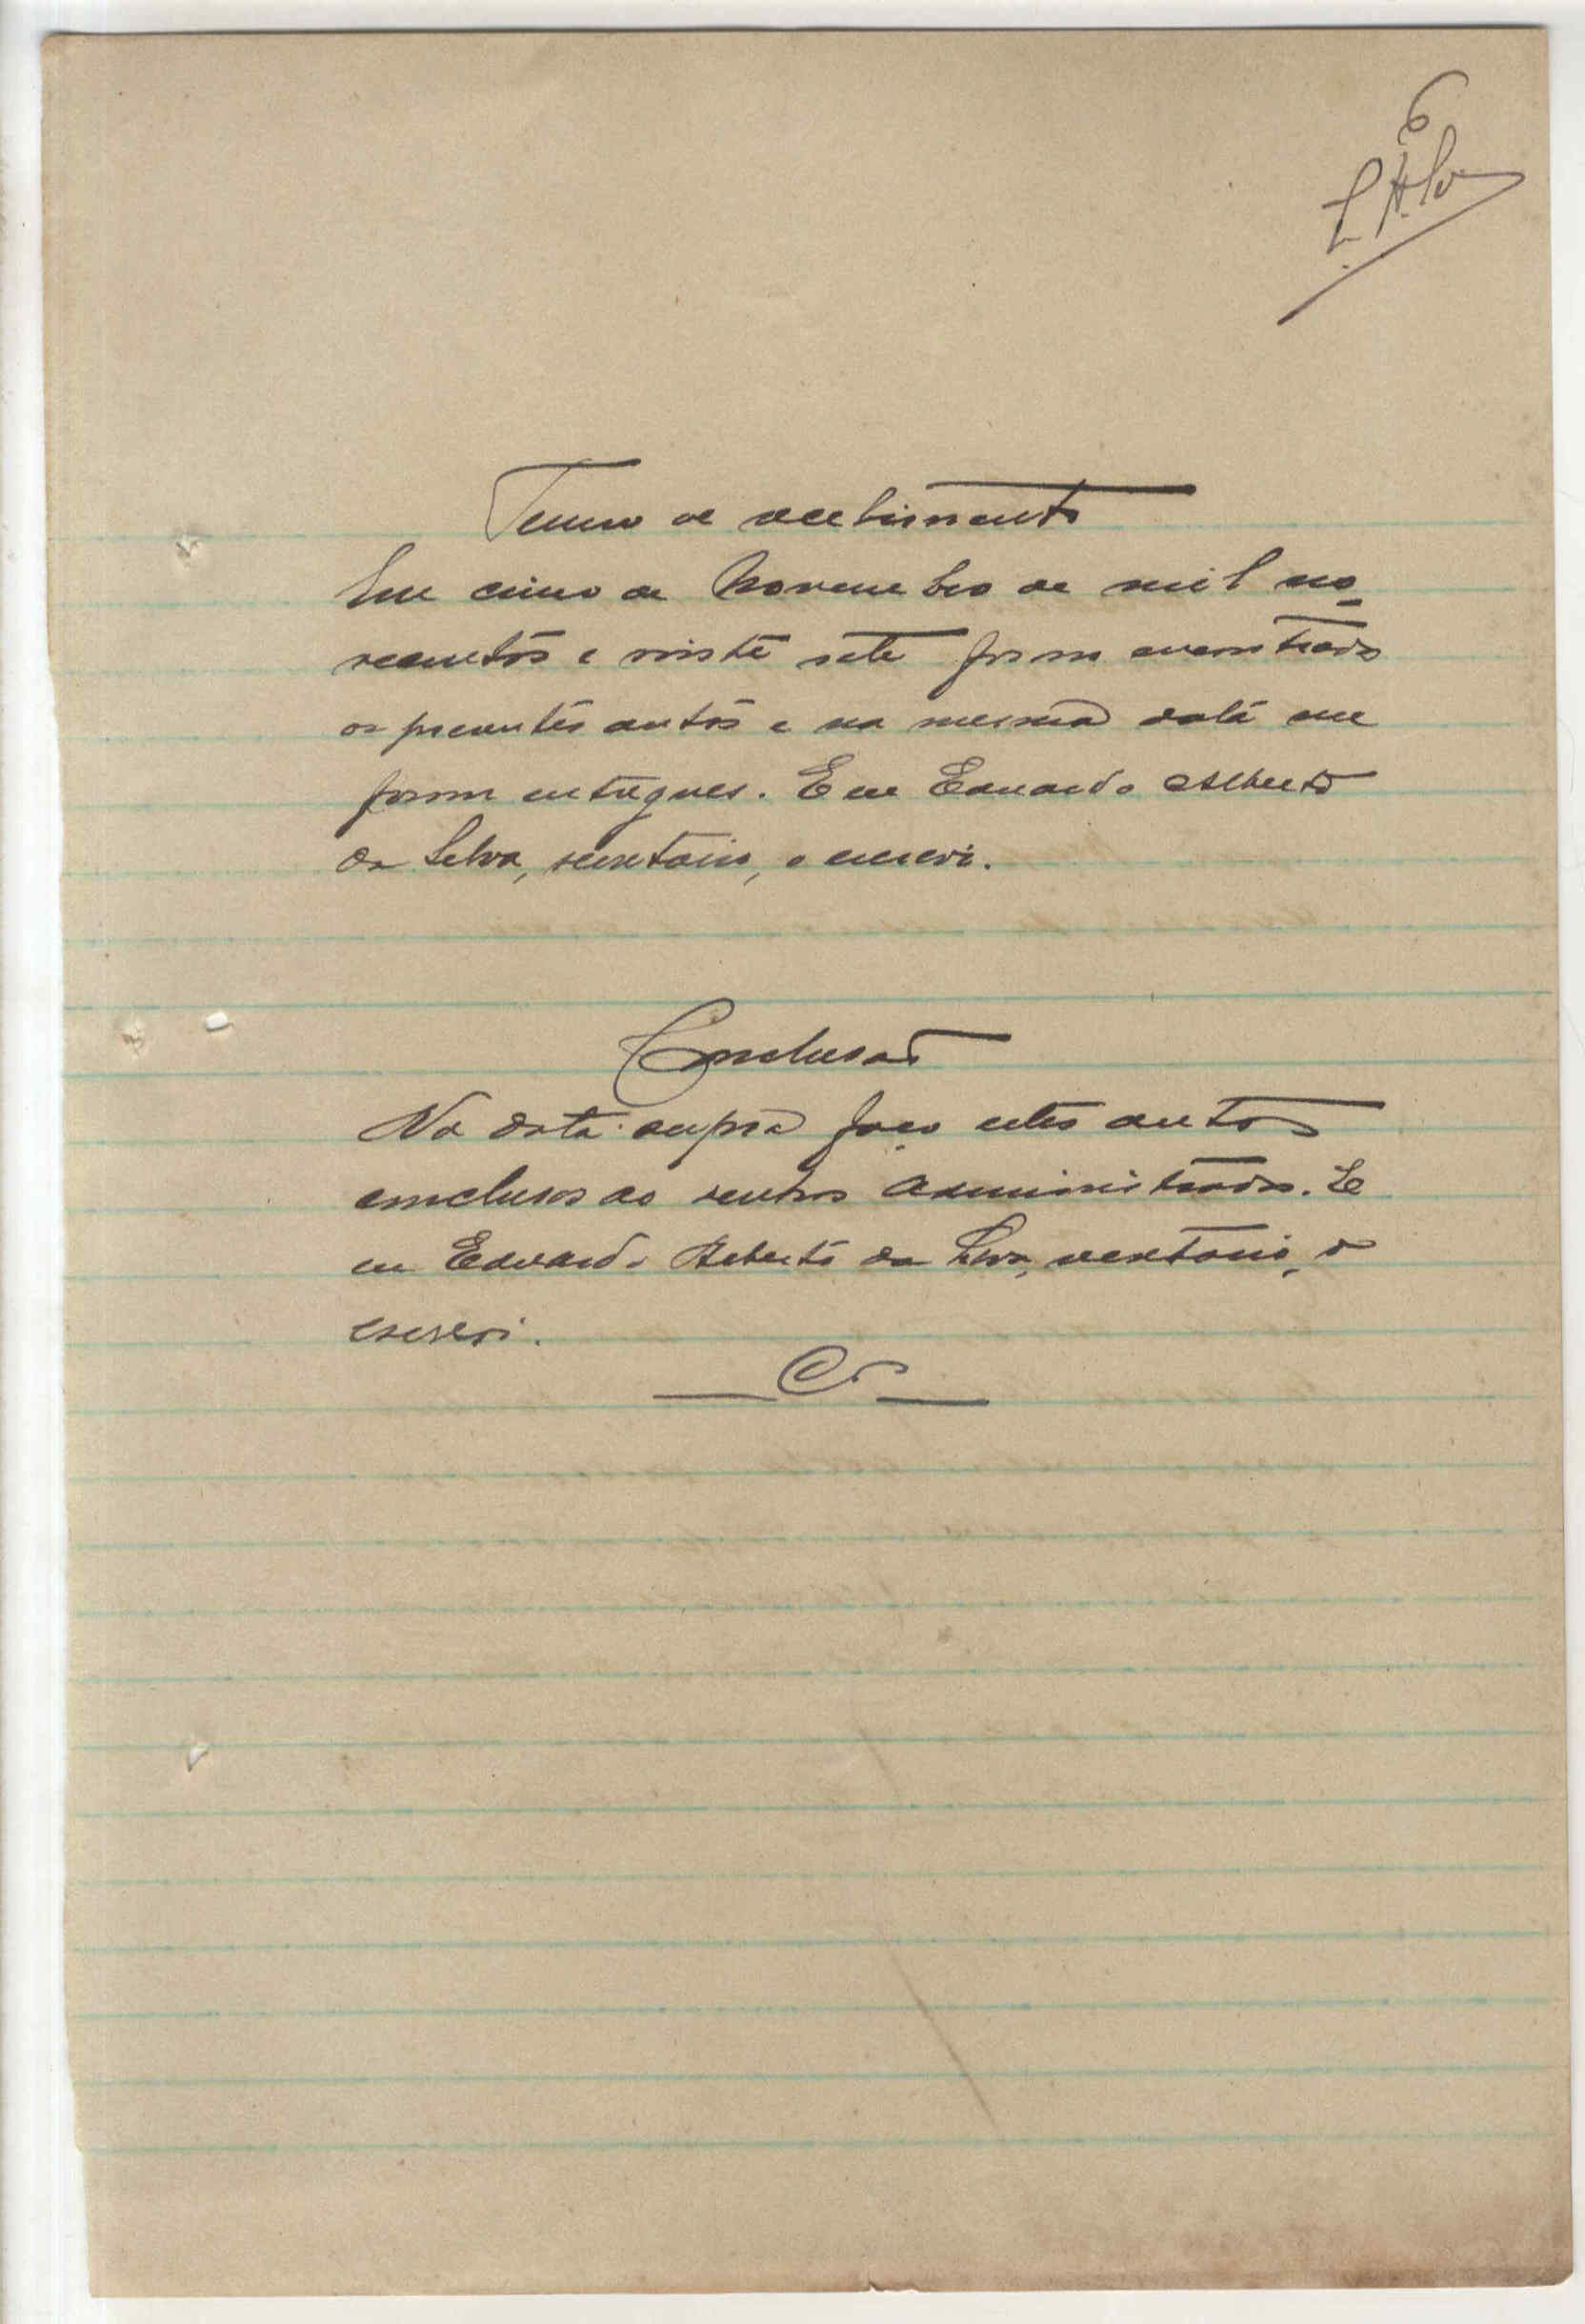 6
E. A. Silva
Termo de recebimento
Em cinco de Novembro de mil no-
vecentos e vinte sete foram encontrados
os presentes autos e na mesma data me
foram entregues. E eu Eduardo Alberto
da Silva, secretario, o escrevi.
Conclusão
Na data supra faço estes autos
conclusos ao senhor Administrador. E
eu Eduardo Alberto da Silva, secretario, o
escrevi.